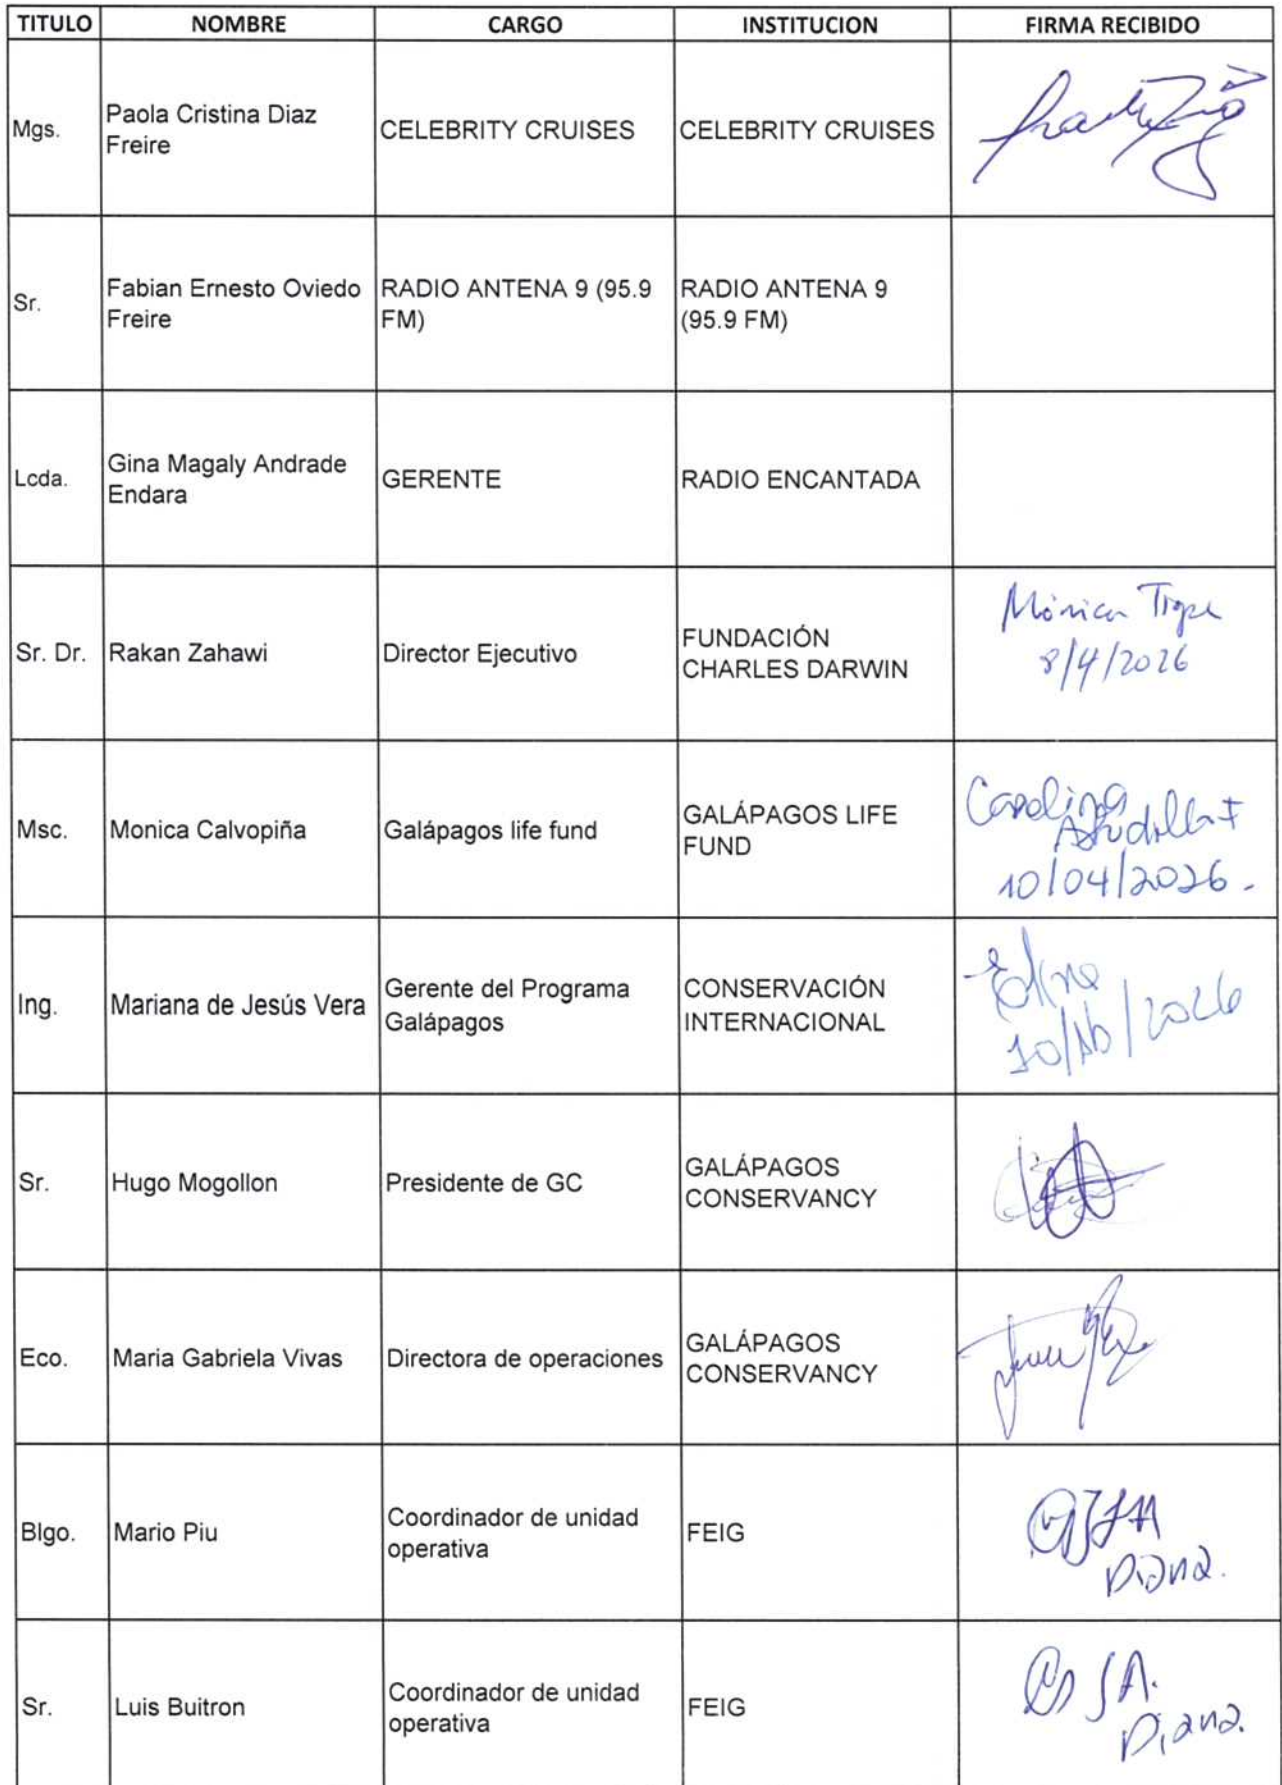 TITULO NOMBRE CARGO INSTITUCION FIRMA RECIBIDO
Mgs.
Paola Cristina Diaz
Freire
CELEBRITY CRUISES
CELEBRITY CRUISES
Sr.
Fabian Ernesto Oviedo
Freire
RADIO ANTENA 9 (95.9
FM)
RADIO ANTENA 9
(95.9 FM)
Lcda.
Gina Magaly Andrade
Endara
GERENTE
RADIO ENCANTADA
Sr. Dr.
Rakan Zahawi
Director Ejecutivo
FUNDACIÓN
CHARLES DARWIN
Mónica
8/4/2026
Msc.
Monica Calvopiña
Galápagos life fund
GALÁPAGOS LIFE
FUND
Carolina
10/04/2026.
Ing.
Mariana de Jesús Vera
Gerente del Programa
Galápagos
CONSERVACIÓN
INTERNACIONAL
Sr.
Hugo Mogollon
Presidente de GC
GALÁPAGOS
CONSERVANCY
Eco.
Maria Gabriela Vivas
Directora de operaciones
GALÁPAGOS
CONSERVANCY
Blgo.
Mario Piu
Coordinador de unidad
operativa
FEIG
Diana.
Sr.
Luis Buitron
Coordinador de unidad
operativa
FEIG
Diana.